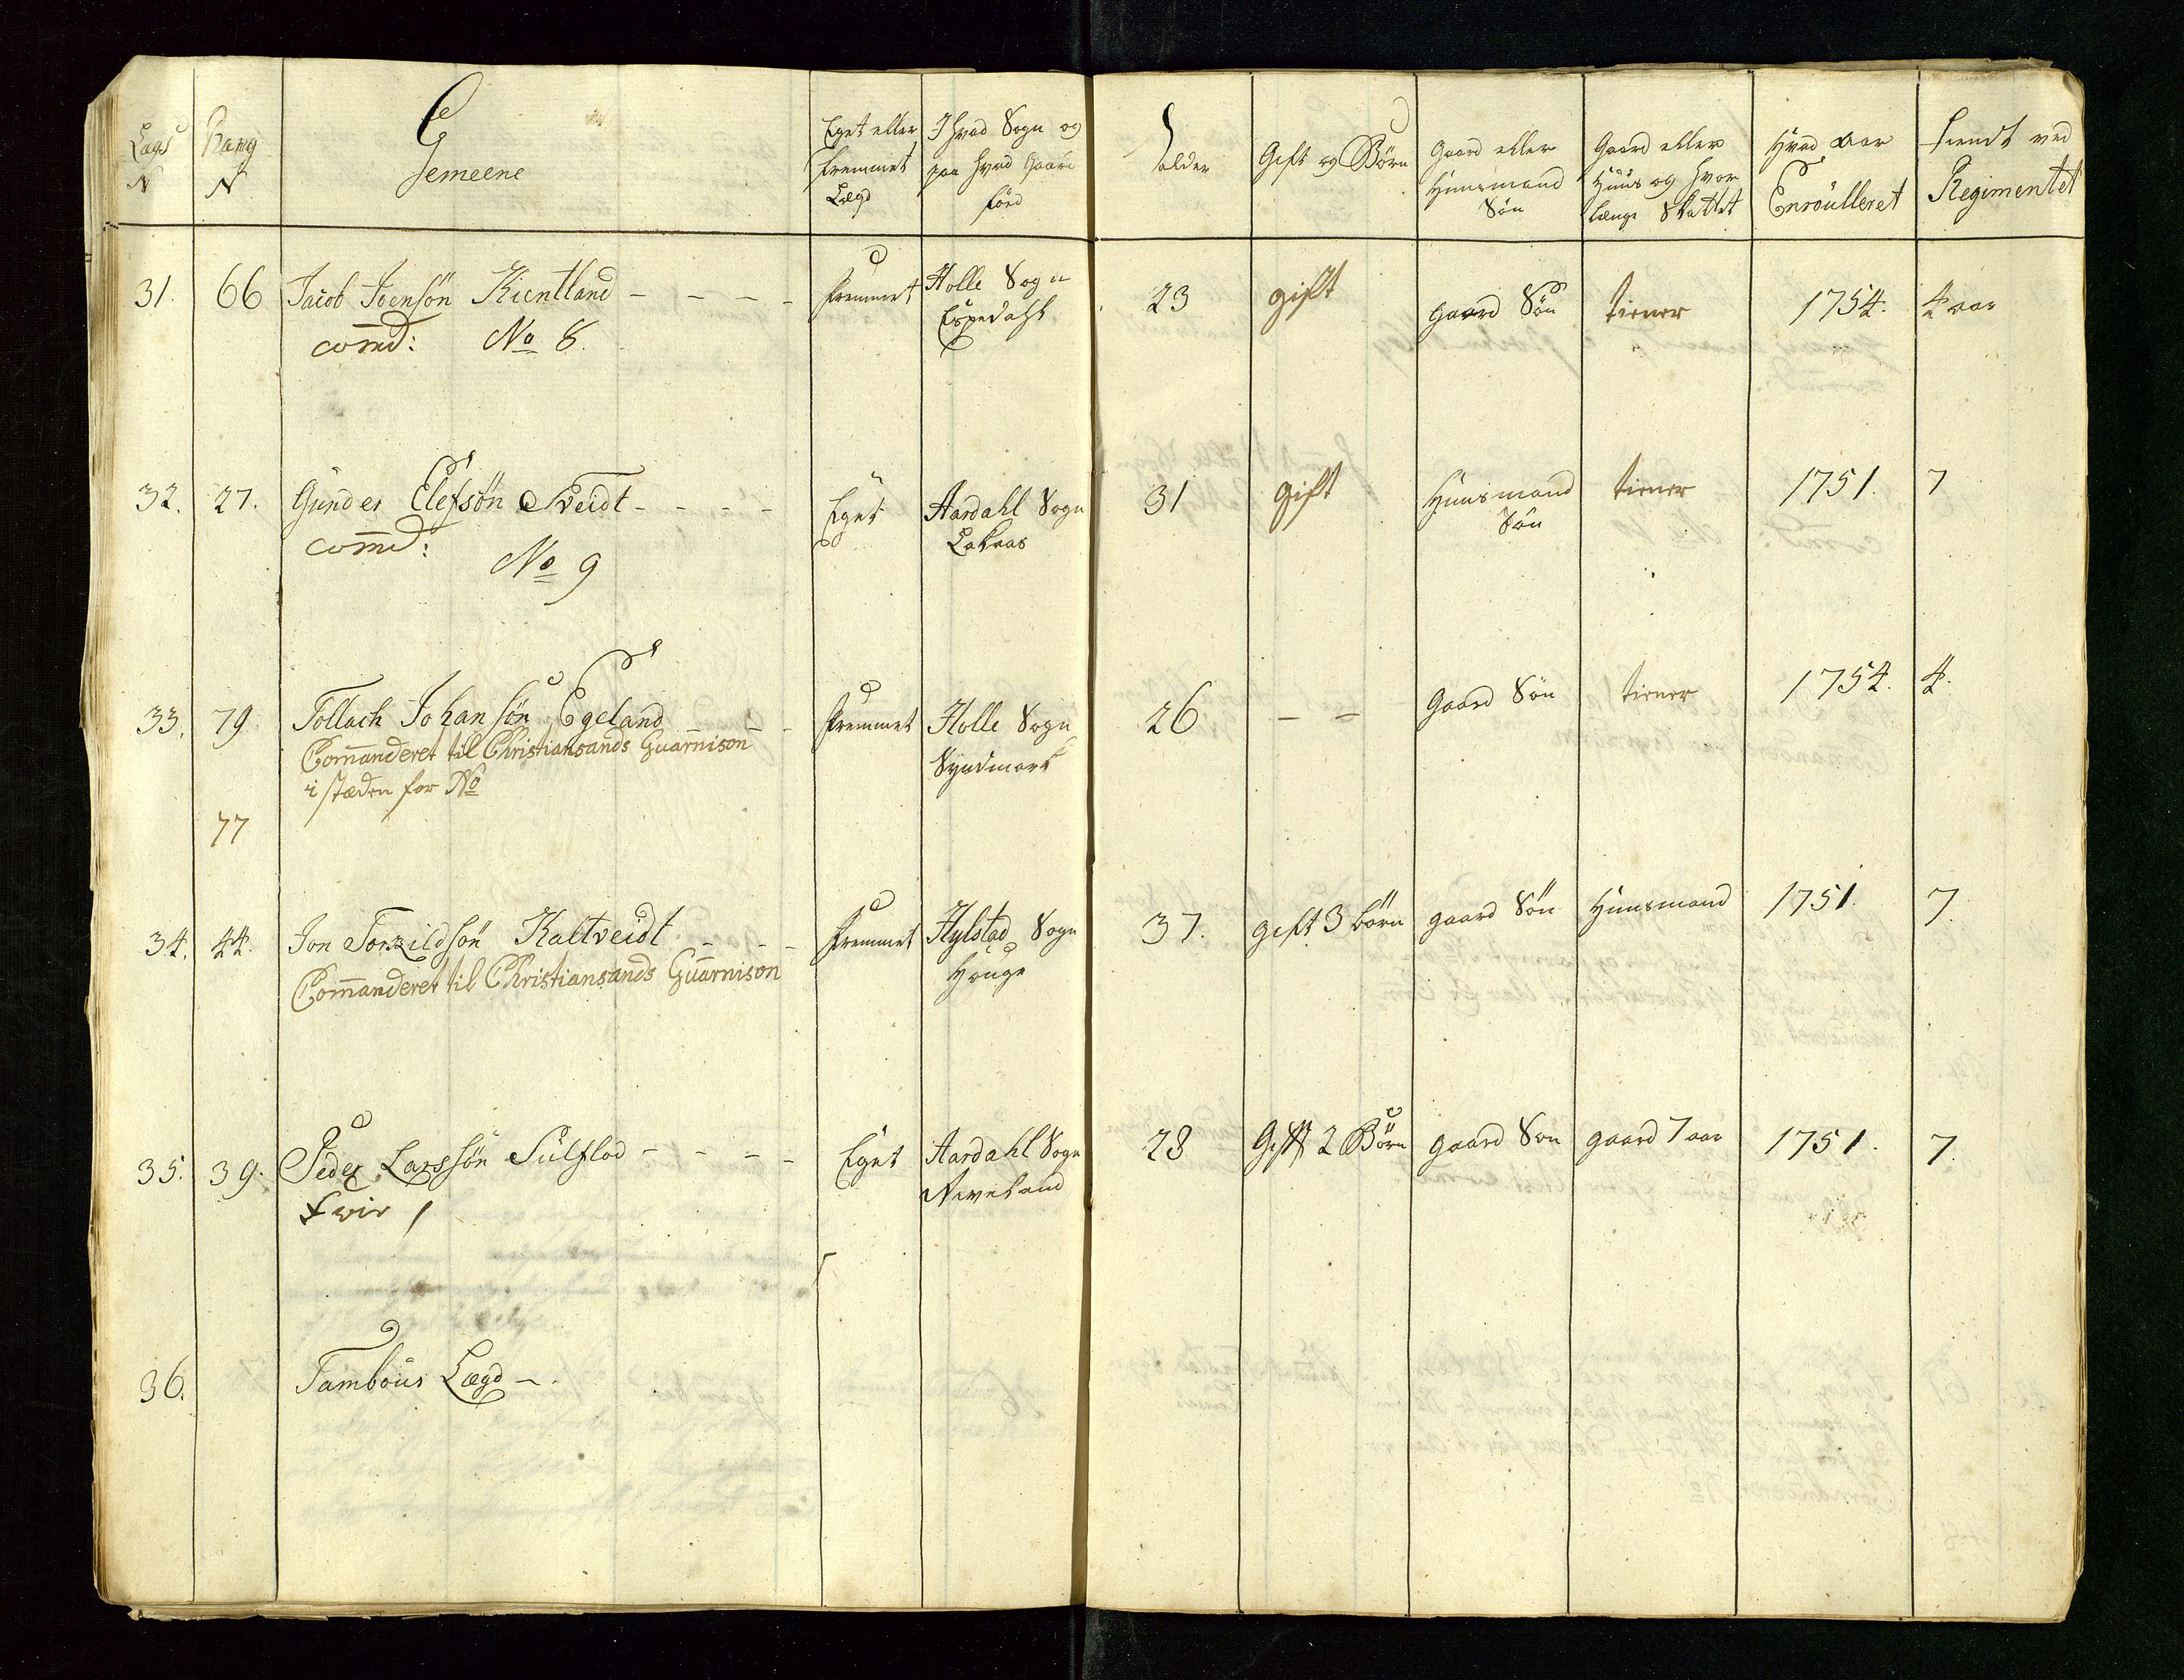 Lægs N
Rang N
Gemeene
Eget eller fremmet Lægd
I hvad Sogn og paa hvad Gaard föd
alder
Gift og Börn
Gaard eller Huusmand Sön
Gaard eller Huus og hvor længe Skattet
Hvad aar Enroulleret
tiendt ved Regimentet
31. 66 Jacob Joensön Kientland - - - - fremmet Holle Sogn 23 gift gaard Sön tiener 1754. 4 aar
com̄d: No 8. Espedahl
32. 27. Gunder Elefsön Tveidt - - - - Eget Aardahl Sogn 31 gift Huusmand Sön tiener 1751. 7
com̄d: Lakaas
No 9
33. 79. Tollach Johansön Egeland - - fremmet Holle Sogn 26 - - Gaard Sön tiener 1754. 4.
Com̄anderet til Christiansands Guarnison Syndmark
i stæden for No
77
34. 44. Jon Torkildsön Kaltveidt - - - fremmet Hylstad Sogn 37. gift 3 börn gaard Sön Huusmand 1751. 7.
Com̄anderet til Christiansands Guarnison Houge
35. 39. Peder Larssön Fulflod - - - - Eget Aardahl Sogn 28 Gift 2 Börn gaard Son gaard 7 aar 1751. 7.
1
36. Tambour Lægd -